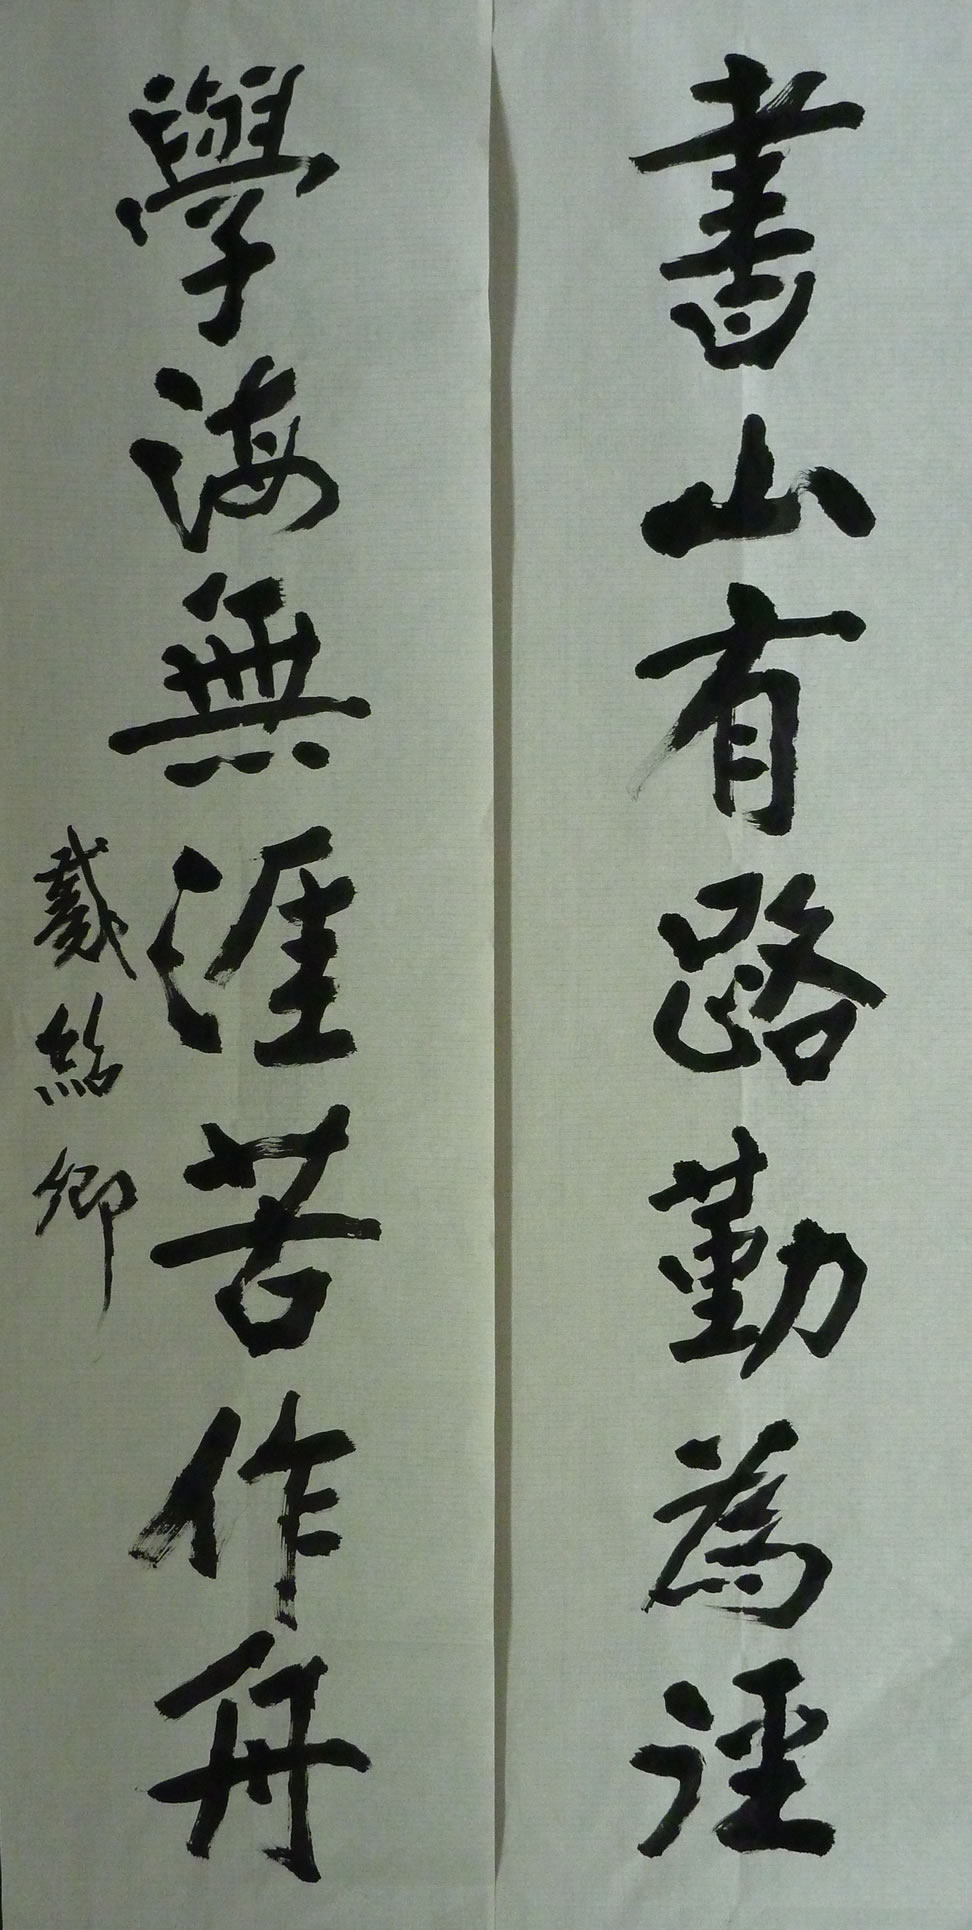 書山有路勤為徑
學海無涯苦作舟
戴紹卿